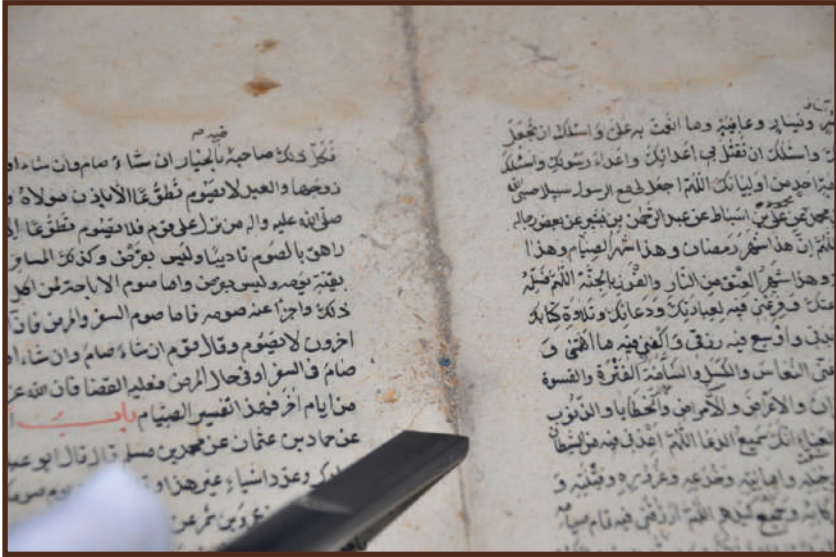 وعافية وما انعمت به علىّ و اسئلك ان تجعل
واسئلك ان تقتل بى اعدائك واعداء رسولك واسئلك
احد من اوليائك اللهمّ اجعل لى مع الرسول سبيلا
علىّ بن اسباط عن عبد الرحمٰن بن بشير عن بعض رجاله
ان هذا شهر رمضان وهذا شهر الصيام وهذا
وهذا شهر العتق من النار والفوز بالجنّة اللهمّ
وفرغنى فيه لعبادتك ودعائك وتلاوة كتابك
واوسع فيه رزقى واكفنى فيه ما اهمّنى و
عنّى النعاس والكسل والسأمة والفترة والقسوة
والاعراض والامراض والخطايا والذنوب
انّك سميع الدعا اللهمّ اعذنى فيه من الشيطان
و
وجميع كيدهم اللهمّ ارزقنى فيه تمام صيامه
فيه م
فكلّ ذلك صاحبه بالخيار ان شاء صام وان شاء
زوجها والعبد لا يصوم تطوّعا الا باذن مولاه و
صلّى الله عليه واله من نزل على قوم فلا يصوم تطوّعا
راهق بالصوم تاديبا وليس بفرض وكذلك المسافر
بقيّة يومه وليس بفرض واما صوم الاباحة لمن اكل
ذلك واجزأ عنه صومه فاما صوم السفر والمرض فان
اخرون لا يصوم وقال قوم ان شاء صام وان شاء
صام فى السفر او فى حال المرض فعليه القضا فان الله
من ايام اخر فهذا تفسير الصيام باب
عن حماد بن عثمان عن محمد بن مسلم قال قال ابو
وعدد اشياء غير هذا
بن شمر عن